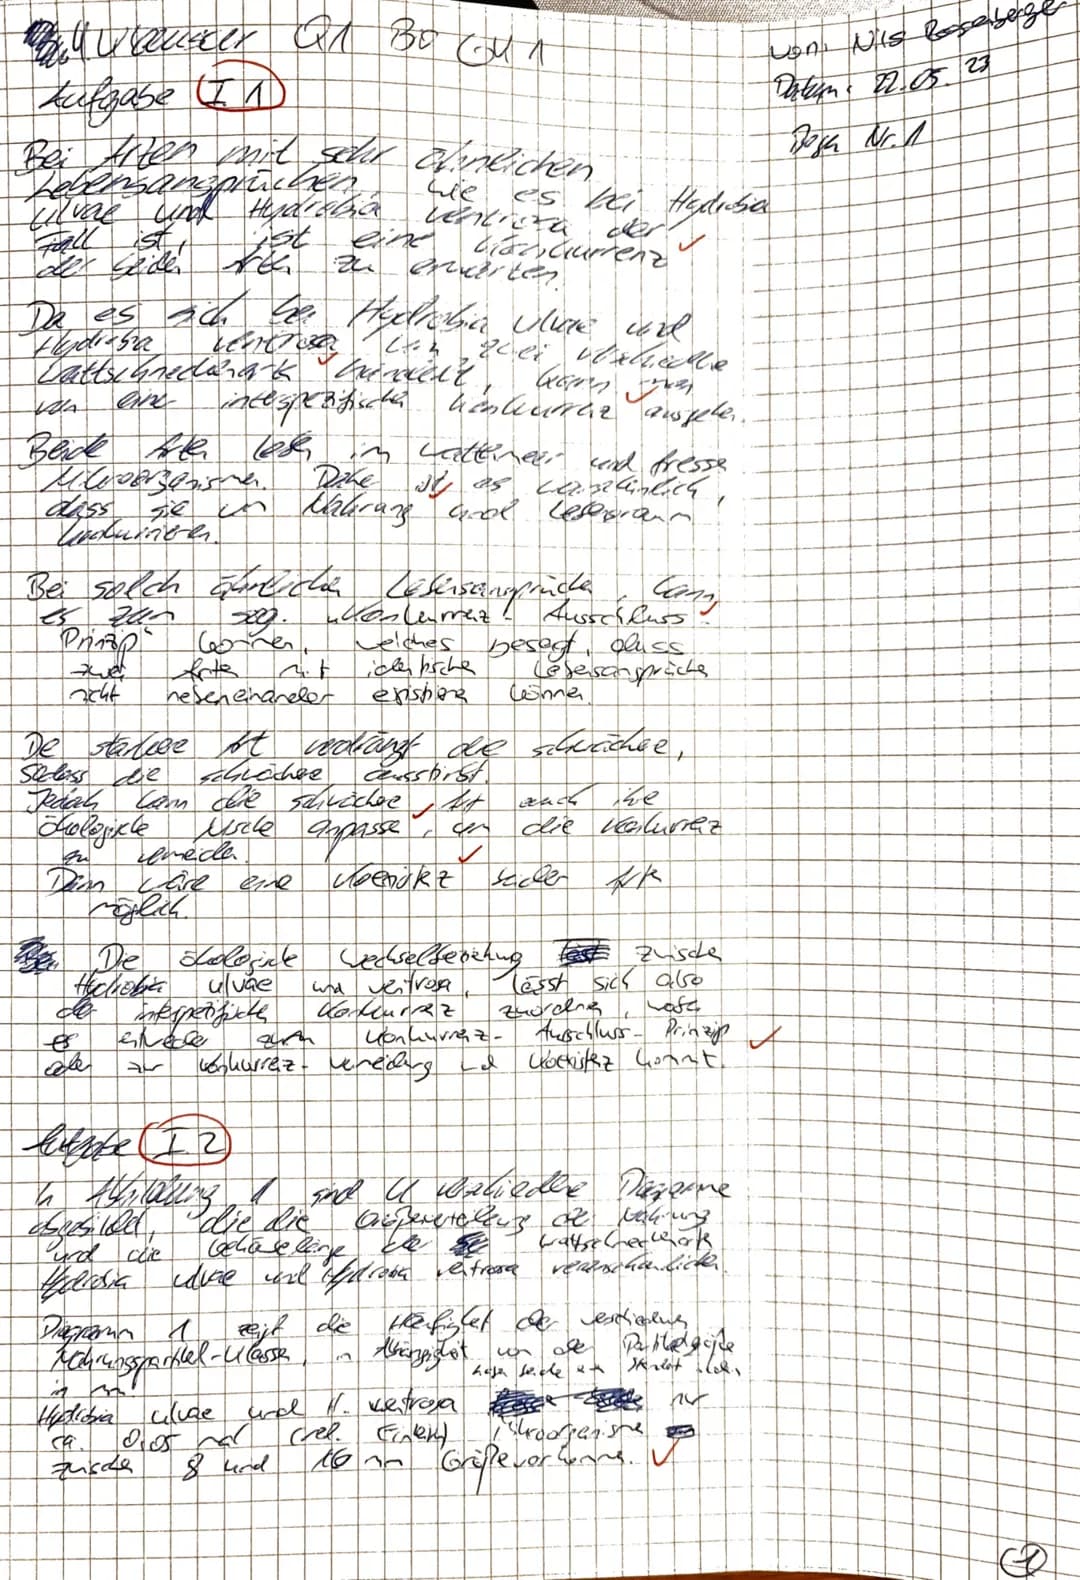 4. Klausur Q1 Bo GK 1
von: Nils Rosenberger
Datum: 22.05.23
Bogen Nr. 1
Aufgabe I 1
Bei Arten mit sehr ähnlichen
Lebensansprüchen, wie es bei Hydrobia
ulvae und Hydrobia ventrosa der
Fall ist, ist eine Konkurrenz
der beiden Arten zu erwarten.
Da es sich bei Hydrobia ulvae und
Hydrobia ventrosa um zwei verschiedene
Wattschneckenarten handelt, kann man
von einer interspezifischen Konkurrenz ausgehen.
Beide Arten leben im Wattenmeer und fressen
Mikroorganismen. Daher ist es wahrscheinlich,
dass sie um Nahrung und Lebensraum
konkurrieren.
Bei solch ähnlichen Lebensansprüchen, kann
es zum sog. „Konkurrenz-Ausschluss-
Prinzip" kommen, welches besagt, dass
zwei Arten mit identischen Lebensansprüchen
nicht nebeneinander existieren können.
Die stärkere Art verdrängt die schwächere,
sodass die schwächere ausstirbt.
Jedoch kann die schwächere Art auch ihre
ökologische Nische anpassen, um die Konkurrenz
zu vermeiden.
Dann wäre eine Koexistenz beider Arten
möglich.
Die ökologische Wechselbeziehung zwischen
Hydrobia ulvae und ventrosa, lässt sich also
der interspezifischen Konkurrenz zuordnen, wobei
es entweder zum Konkurrenz-Ausschluss-Prinzip
oder zur Konkurrenz-vermeidung und Koexistenz kommt.
Aufgabe I 2
In Abbildung 1 sind 4 verschiedene Diagramme
abgebildet, die die Größenverteilung der Nahrung
und die Gehäuselänge der Wattschneckenarten
Hydrobia ulvae und Hydrobia ventrosa veranschaulichen.
Diagramm 1 zeigt die Häufigkeit der verschiedenen
Nahrungspartikel-Klassen, in Abhängigkeit von der Partikelgröße
in
wenn beide am Standort leben,
Hydrobia ulvae und H. ventrosa nur
ca. 0,05 mal (rel. Einheit) Mikroorganismen
zwischen 8 und 16 Größe vorkommen.
1